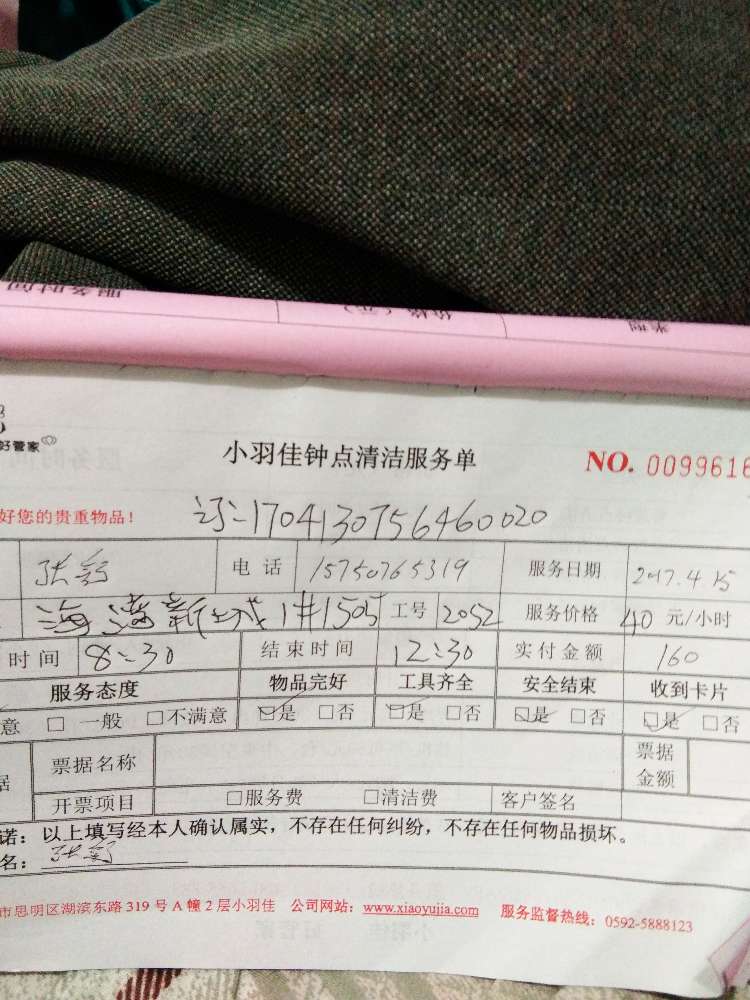 服务时间
价格（元）
类型
好管家
小羽佳钟点清洁服务单
NO. 0099616
好您的贵重物品！
订:170413075646002​0
张 电话 15750765319 服务日期 2017.4.15
海湾新城1#1505 工号 2052 服务价格 40 元/小时
时间 8:30 结束时间 12:30 实付金额 160
服务态度 物品完好 工具齐全 安全结束 收到卡片
意 □ 一般 □不满意 ☑是 □否 ☑是 □否 ☑是 □否 ☑是 □否
据 票据名称 票据金额
开票项目 □服务费 □清洁费 客户签名
诺：以上填写经本人确认属实，不存在任何纠纷，不存在任何物品损坏。
名：张
市思明区湖滨东路 319 号 A 幢 2 层小羽佳 公司网站：www.xiaoyujia.com 服务监督热线：0592-5888123